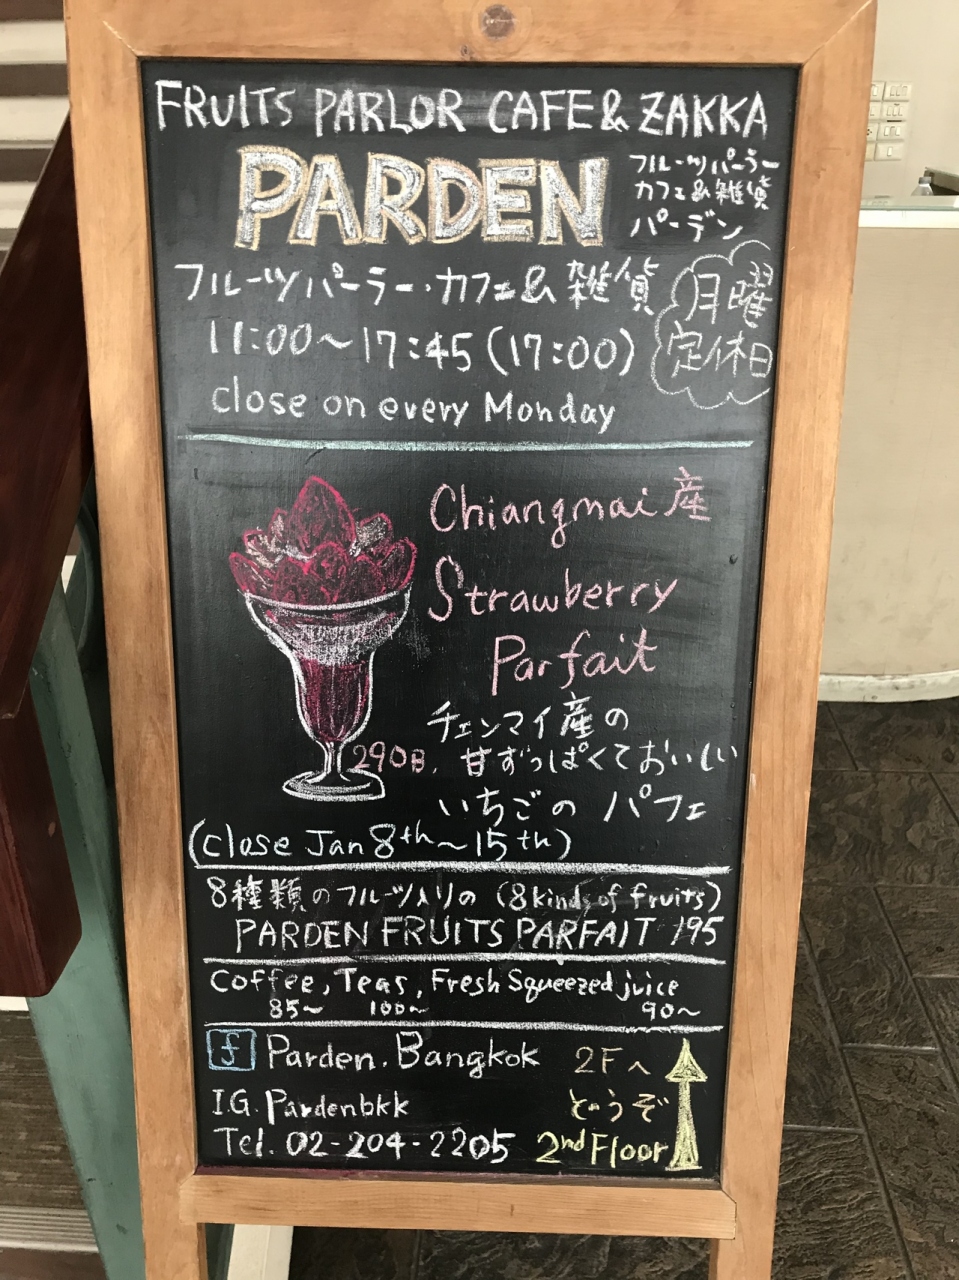 FRUITS PARLOR CAFE & ZAKKA
PARDEN
フルーツパーラー
カフェ&雑貨
パーデン
フルーツパーラー・カフェ&雑貨
月曜
定休日
11:00〜17:45(17:00)
close on every Monday
Chiangmai産
Strawberry
Parfait
チェンマイ産の
290B. 甘ずっぱくておいしい
いちごのパフェ
(close Jan 8th〜15th)
8種類のフルーツ入りの (8 kinds of fruits)
PARDEN FRUITS PARFAIT 195
Coffee, Teas, Fresh Squeezed juice
85〜 100〜 90〜
f Parden.Bangkok
2Fへ
I.G. Pardenbkk
どうぞ
Tel. 02-204-2205
2nd Floor